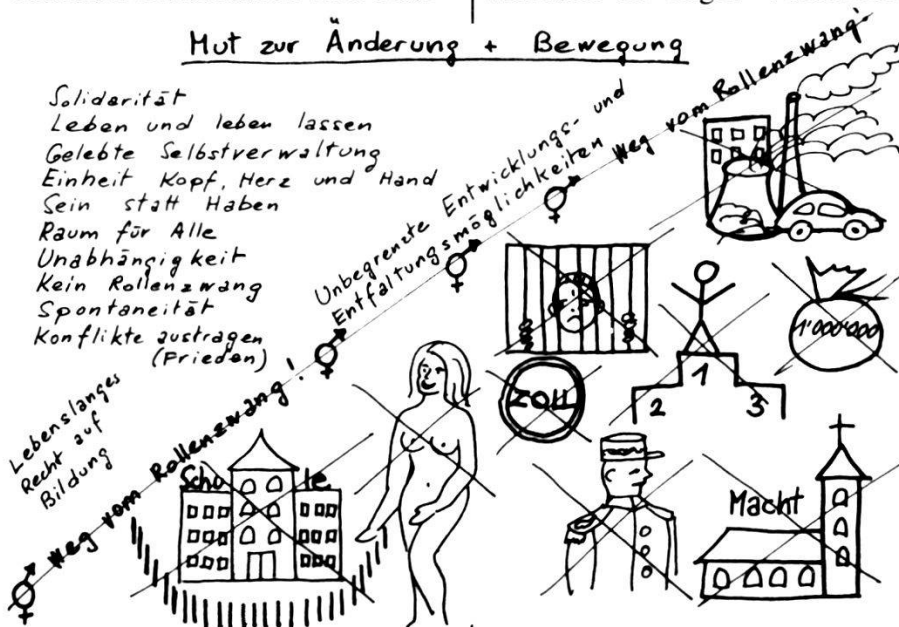 Mut zur Änderung + Bewegung
Solidarität
Leben und leben lassen
Gelebte Selbstverwaltung
Einheit Kopf, Herz und Hand
Sein statt Haben
Raum für Alle
Unabhängigkeit
Kein Rollenzwang
Spontaneität
Konflikte austragen
(Frieden)
Unbegrenzte Entwicklungs- und
Entfaltungsmöglichkeiten
Weg vom Rollenzwang!
Lebenslanges
Recht auf
Bildung
Weg vom Rollenzwang!
Schule
ZOLL
1
2
3
1'000'000
Macht